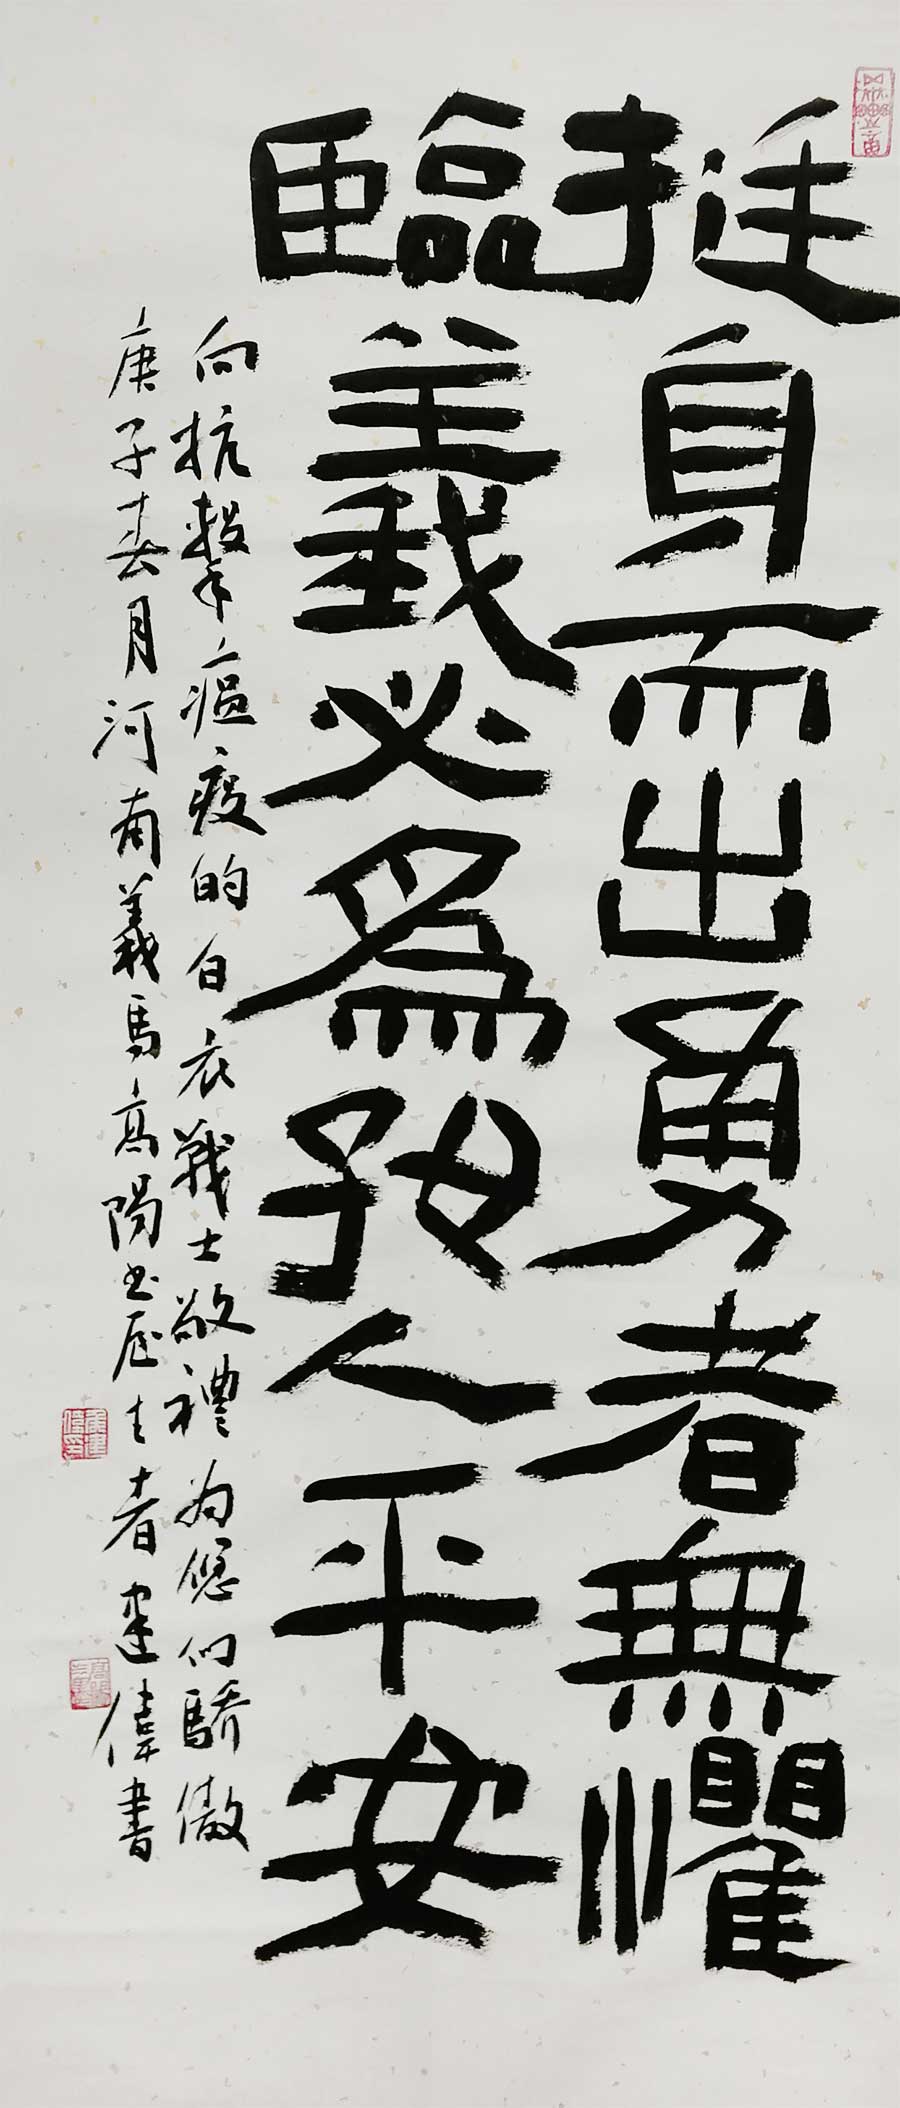 挺身而出勇者無懼
臨義必為祝人平安
向抗擊瘟疫的白衣戰士敬禮為您们驕傲
庚子春月河南義馬高陽书屋主者建偉書